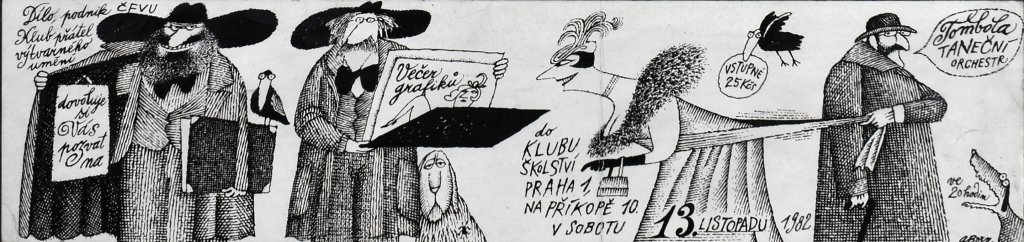 Dílo, podnik ČFVU
Klub přátel
výtvarného
umění
dovoluje
si
Vás
pozvat
na
Večer
grafiků
do
KLUBU
ŠKOLSTVÍ
PRAHA 1,
NA PŘÍKOPĚ 10.
V SOBOTU
13. LISTOPADU 1982
VSTUPNÉ
25 Kčs
Tombola
TANEČNÍ
ORCHESTR
ve
20 hodin